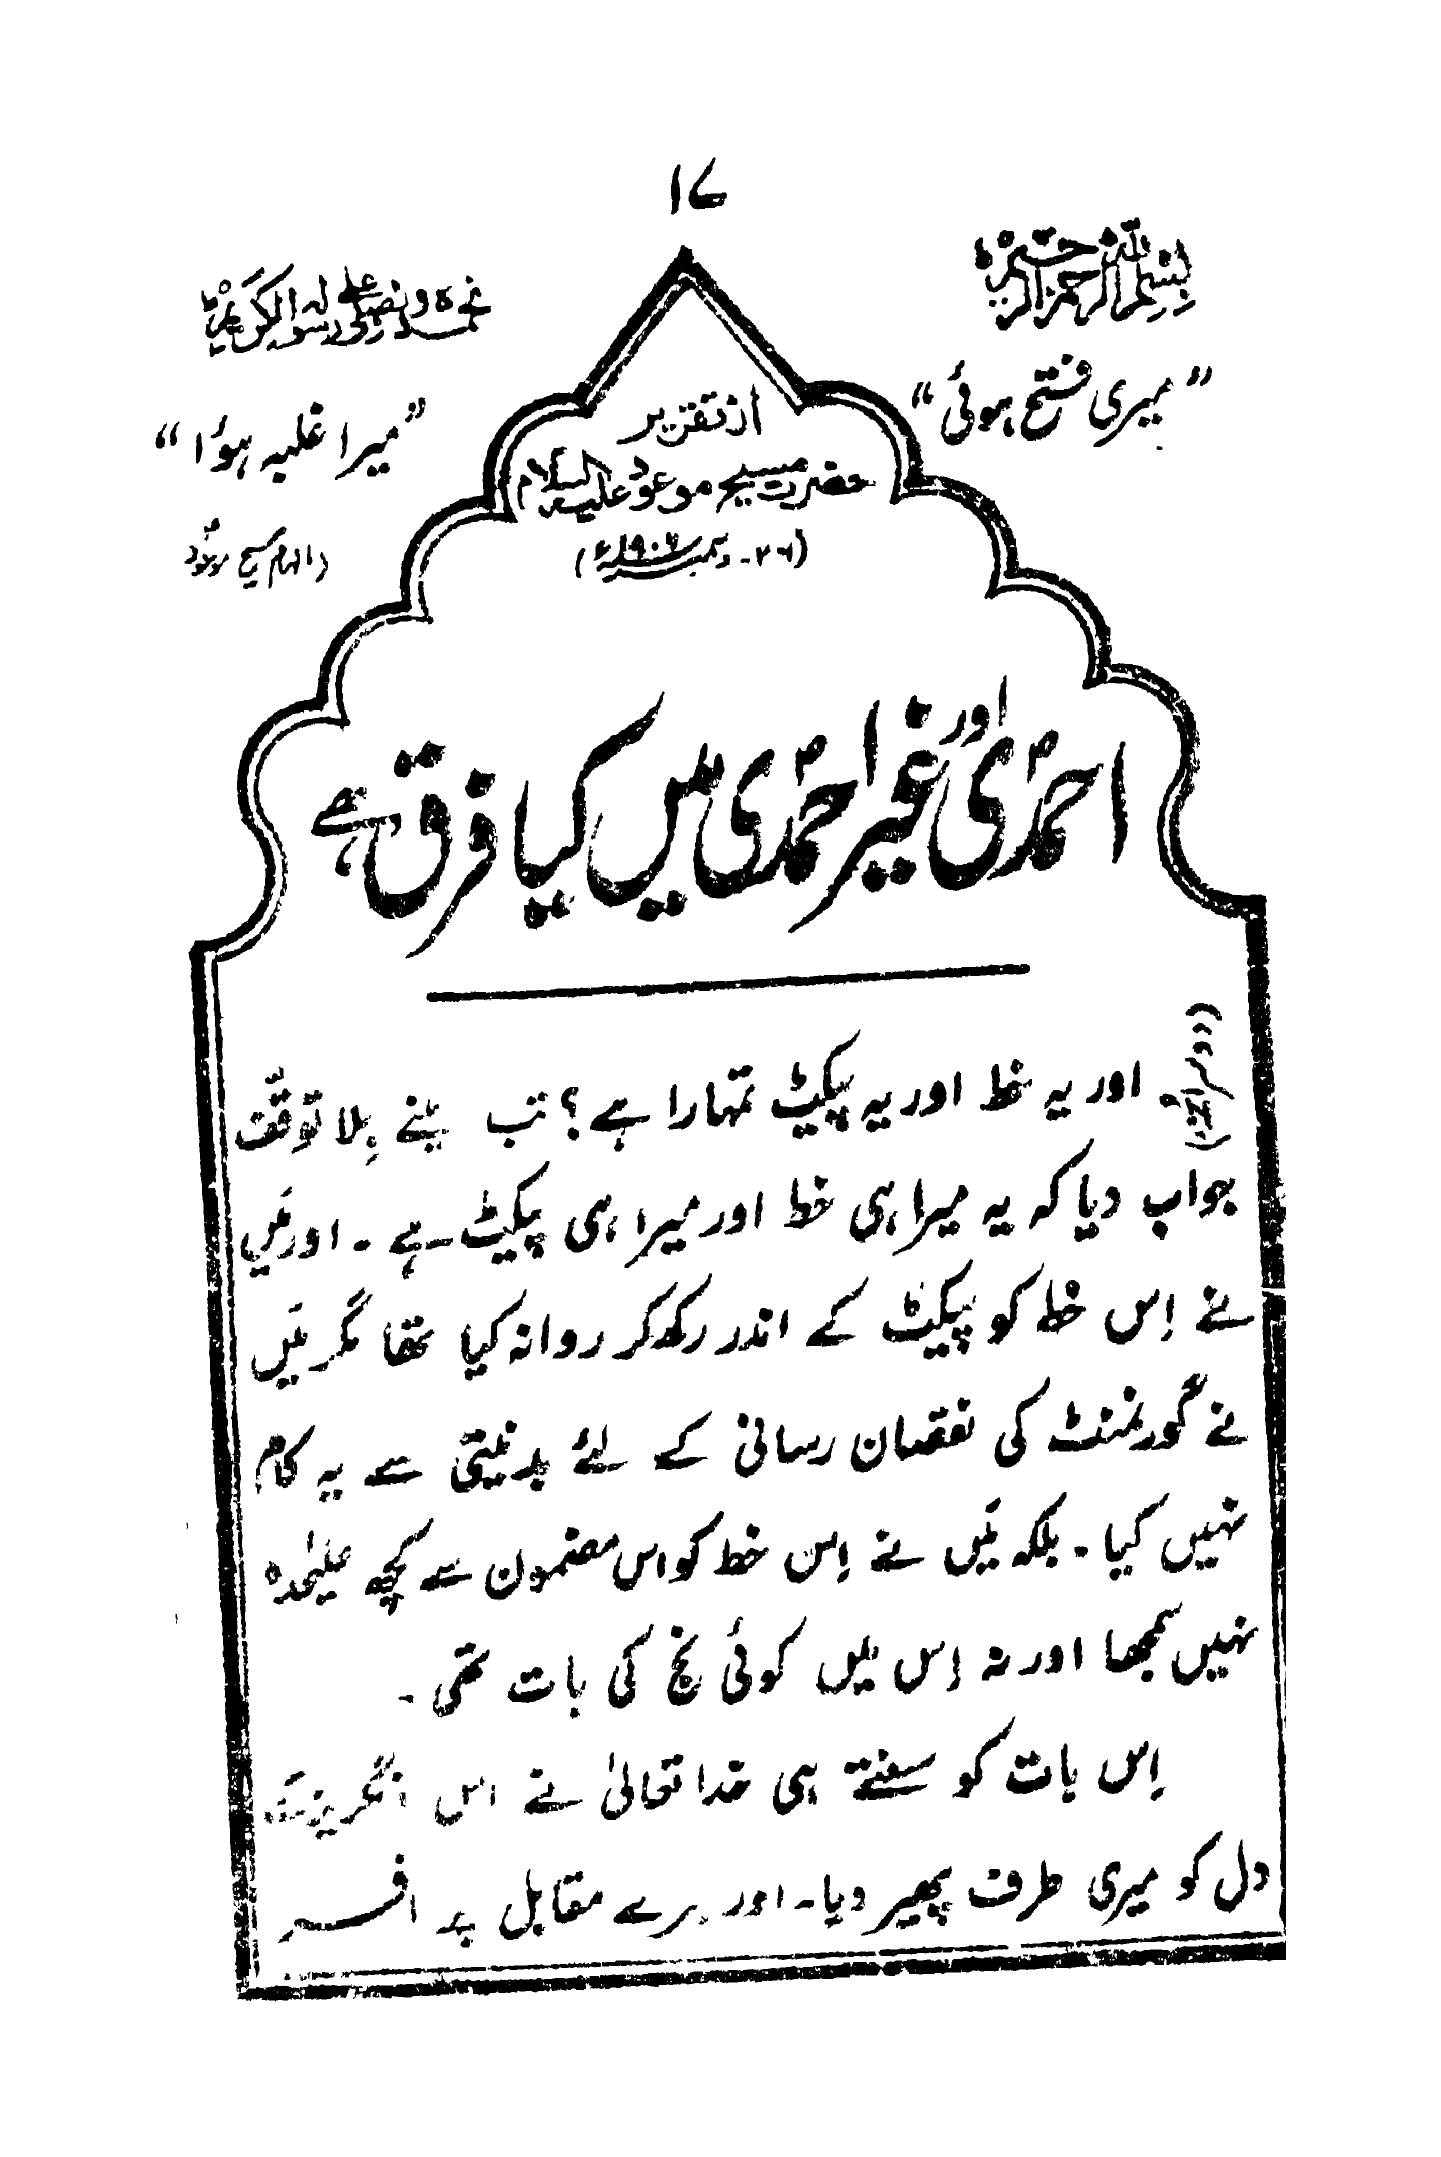 ۱۷
بسم اللہ الرحمٰن الرحیم
نحمدہ ونصلی علیٰ رسولہ الکریم
"میری فتح ہوئی"
"میرا غلبہ ہوُا"
(الہام مسیح موعودؑ)
از تقریر
حضرت مسیح موعود علیہ السلام
(۲۶۔ دسمبر ۱۹۰۶ء)
احمدؐی اور غیر احمدؐی میں کیا فرق ہے
(دوسرا
اور یہ خط اور یہ پیکیٹ تمہارا ہے؟ تب مَیں نے بلا توقّف
جواب دیا کہ یہ میرا ہی خط اور میرا ہی پیکیٹ ہے۔ اور مَیں
نے اِس خط کو پیکیٹ کے اندر رکھ کر روانہ کیا تھا مگر مَیں
نے گورنمنٹ کی نقصان رسانی کے لئے بدنیتی سے یہ کام
نہیں کیا۔ بلکہ مَیں نے اِس خط کو اس مضمون سے کچھ علیٰحدہ
نہیں سمجھا اور نہ اِس میں کوئی نج کی بات تھی۔
اِس بات کو سنتے ہی خدا تعالیٰ نے اس انگریز کے
دل کو میری طرف پھیر دیا۔ اور میرے مقابل پر افسر